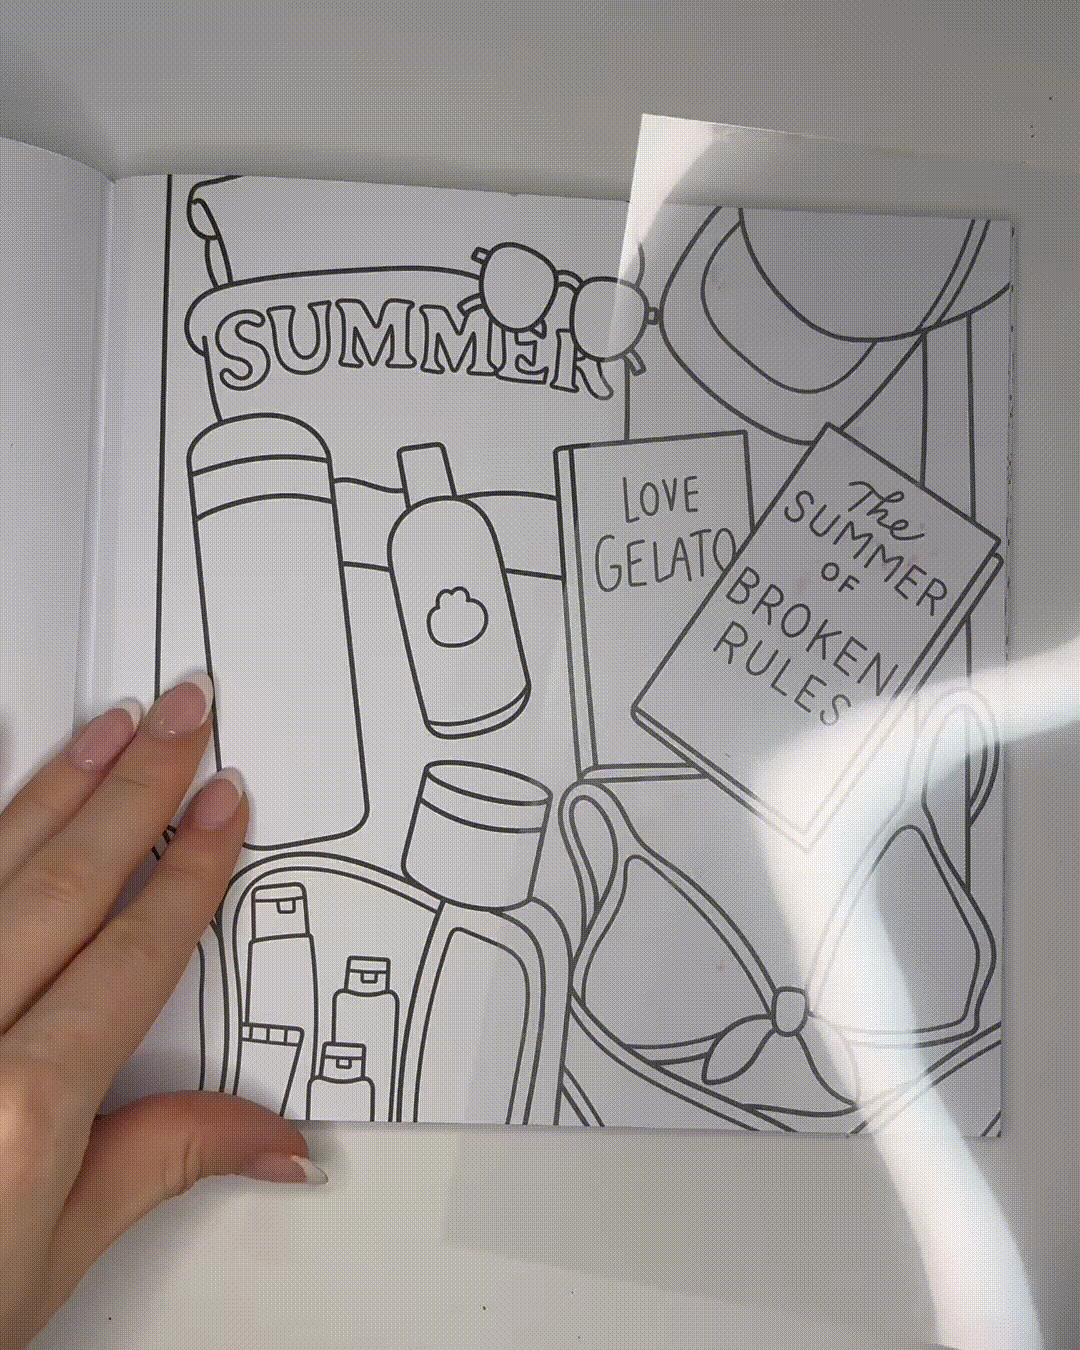 SUMMER
LOVE
GELATO
The
SUMMER
OF
BROKEN
RULES